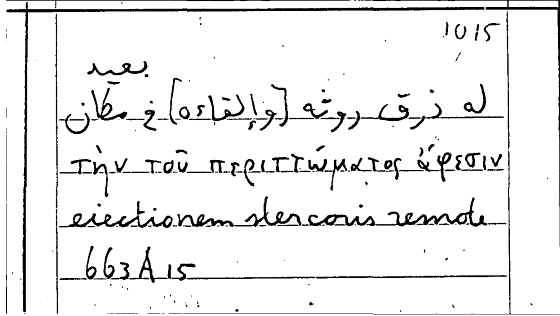 1015
بعيد
له ذرق روثه [وإلقاءه] في مكان
τὴν τοῦ περιττώματος ἄφεσιν
eiectionem stercoris remote
663A15